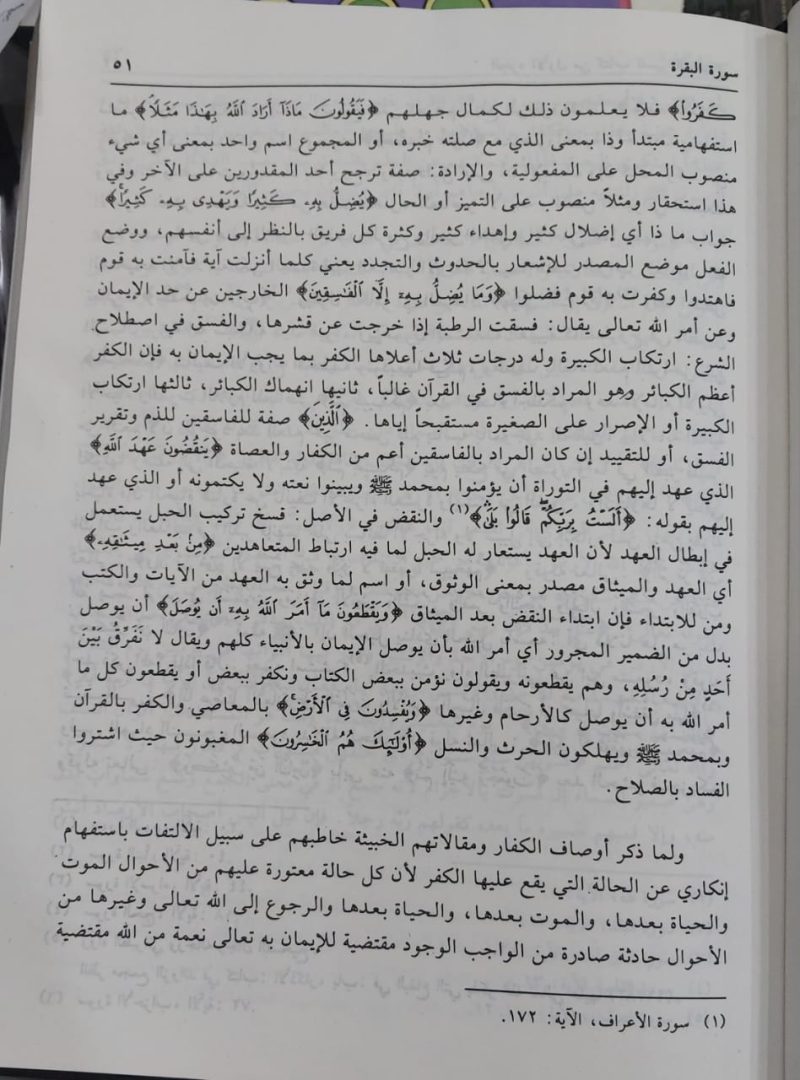 سورة البقرة ٥١
كَفَرُوا﴾ فلا يعلمون ذلك لكمال جهلهم ﴿فَيَقُولُونَ مَاذَا أَرَادَ اللَّهُ بِهَذَا مَثَلاً﴾ ما
استفهامية مبتدأ وذا بمعنى الذي مع صلته خبره، أو المجموع اسم واحد بمعنى أي شيء
منصوب المحل على المفعولية، والإرادة: صفة ترجح أحد المقدورين على الآخر وفي
هذا استحقار ومثلاً منصوب على التميز أو الحال ﴿يُضِلُّ بِهِ كَثِيرًا وَيَهْدِي بِهِ كَثِيرًا﴾
جواب ما ذا أي إضلال كثير وإهداء كثير وكثرة كل فريق بالنظر إلى أنفسهم، ووضع
الفعل موضع المصدر للإشعار بالحدوث والتجدد يعني كلما أنزلت آية فآمنت به قوم
فاهتدوا وكفرت به قوم فضلوا ﴿وَمَا يُضِلُّ بِهِ إِلَّا الْفَاسِقِينَ﴾ الخارجين عن حد الإيمان
وعن أمر الله تعالى يقال: فسقت الرطبة إذا خرجت عن قشرها، والفسق في اصطلاح
الشرع: ارتكاب الكبيرة وله درجات ثلاث أعلاها الكفر بما يجب الإيمان به فإن الكفر
أعظم الكبائر وهو المراد بالفسق في القرآن غالباً، ثانيها انهماك الكبائر، ثالثها ارتكاب
الكبيرة أو الإصرار على الصغيرة مستقبحاً إياها. ﴿الَّذِينَ﴾ صفة للفاسقين للذم وتقرير
الفسق، أو للتقييد إن كان المراد بالفاسقين أعم من الكفار والعصاة ﴿يَنقُضُونَ عَهْدَ اللَّهِ﴾
الذي عهد إليهم في التوراة أن يؤمنوا بمحمد ﷺ ويبينوا نعته ولا يكتمونه أو الذي عهد
إليهم بقوله: ﴿أَلَسْتُ بِرَبِّكُمْ قَالُوا بَلَى﴾(١) والنقض في الأصل: فسخ تركيب الحبل يستعمل
في إبطال العهد لأن العهد يستعار له الحبل لما فيه ارتباط المتعاهدين ﴿مِنْ بَعْدِ مِيثَاقِهِ﴾
أي العهد والميثاق مصدر بمعنى الوثوق، أو اسم لما وثق به العهد من الآيات والكتب
ومن للابتداء فإن ابتداء النقض بعد الميثاق ﴿وَيَقْطَعُونَ مَا أَمَرَ اللَّهُ بِهِ أَن يُوصَلَ﴾ أن يوصل
بدل من الضمير المجرور أي أمر الله بأن يوصل الإيمان بالأنبياء كلهم ويقال لا نَفَرِّقُ بَيْنَ
أَحَدٍ مِنْ رُسُلِهِ، وهم يقطعونه ويقولون نؤمن ببعض الكتاب ونكفر ببعض أو يقطعون كل ما
أمر الله به أن يوصل كالأرحام وغيرها ﴿وَيُفْسِدُونَ فِي الْأَرْضِ﴾ بالمعاصي والكفر بالقرآن
وبمحمد ﷺ ويهلكون الحرث والنسل ﴿أُولَئِكَ هُمُ الْخَاسِرُونَ﴾ المغبونون حيث اشتروا
الفساد بالصلاح.
ولما ذكر أوصاف الكفار ومقالاتهم الخبيثة خاطبهم على سبيل الالتفات باستفهام
إنكاري عن الحالة التي يقع عليها الكفر لأن كل حالة معتورة عليهم من الأحوال الموت
والحياة بعدها، والموت بعدها، والحياة بعدها والرجوع إلى الله تعالى وغيرها من
الأحوال حادثة صادرة من الواجب الوجود مقتضية للإيمان به تعالى نعمة من الله مقتضية
(١) سورة الأعراف، الآية: ١٧٢.